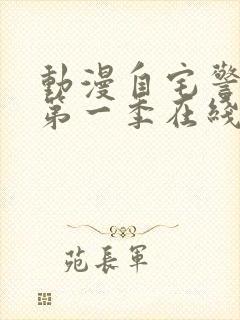 動漫自宅警
第一季在綫
苑長軍